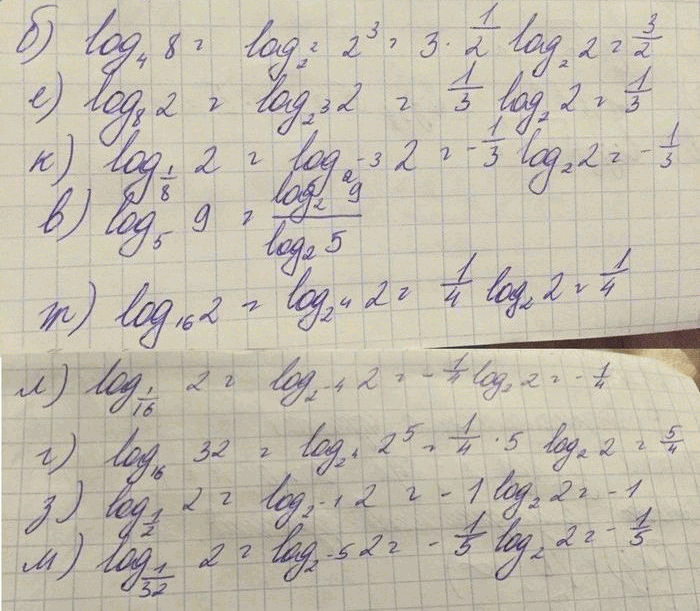 б) log₄ 8 = log₂² 2³ = 3 · 1/2 log₂ 2 = 3/2
е) log₈ 2 = log₂³ 2 = 1/3 log₂ 2 = 1/3
к) log_(1/8) 2 = log₂⁻³ 2 = -1/3 log₂ 2 = -1/3
в) log₅ 9 = log₂ 9 / log₂ 5
ж) log₁₆ 2 = log₂⁴ 2 = 1/4 log₂ 2 = 1/4
л) log_(1/16) 2 = log₂⁻⁴ 2 = -1/4 log₂ 2 = -1/4
г) log₁₆ 32 = log₂⁴ 2⁵ = 1/4 · 5 log₂ 2 = 5/4
з) log_(1/2) 2 = log₂⁻¹ 2 = -1 log₂ 2 = -1
м) log_(1/32) 2 = log₂⁻⁵ 2 = -1/5 log₂ 2 = -1/5